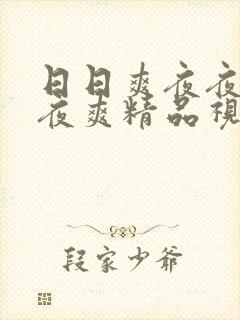 日日爽夜夜
夜爽精品視
段家少爷